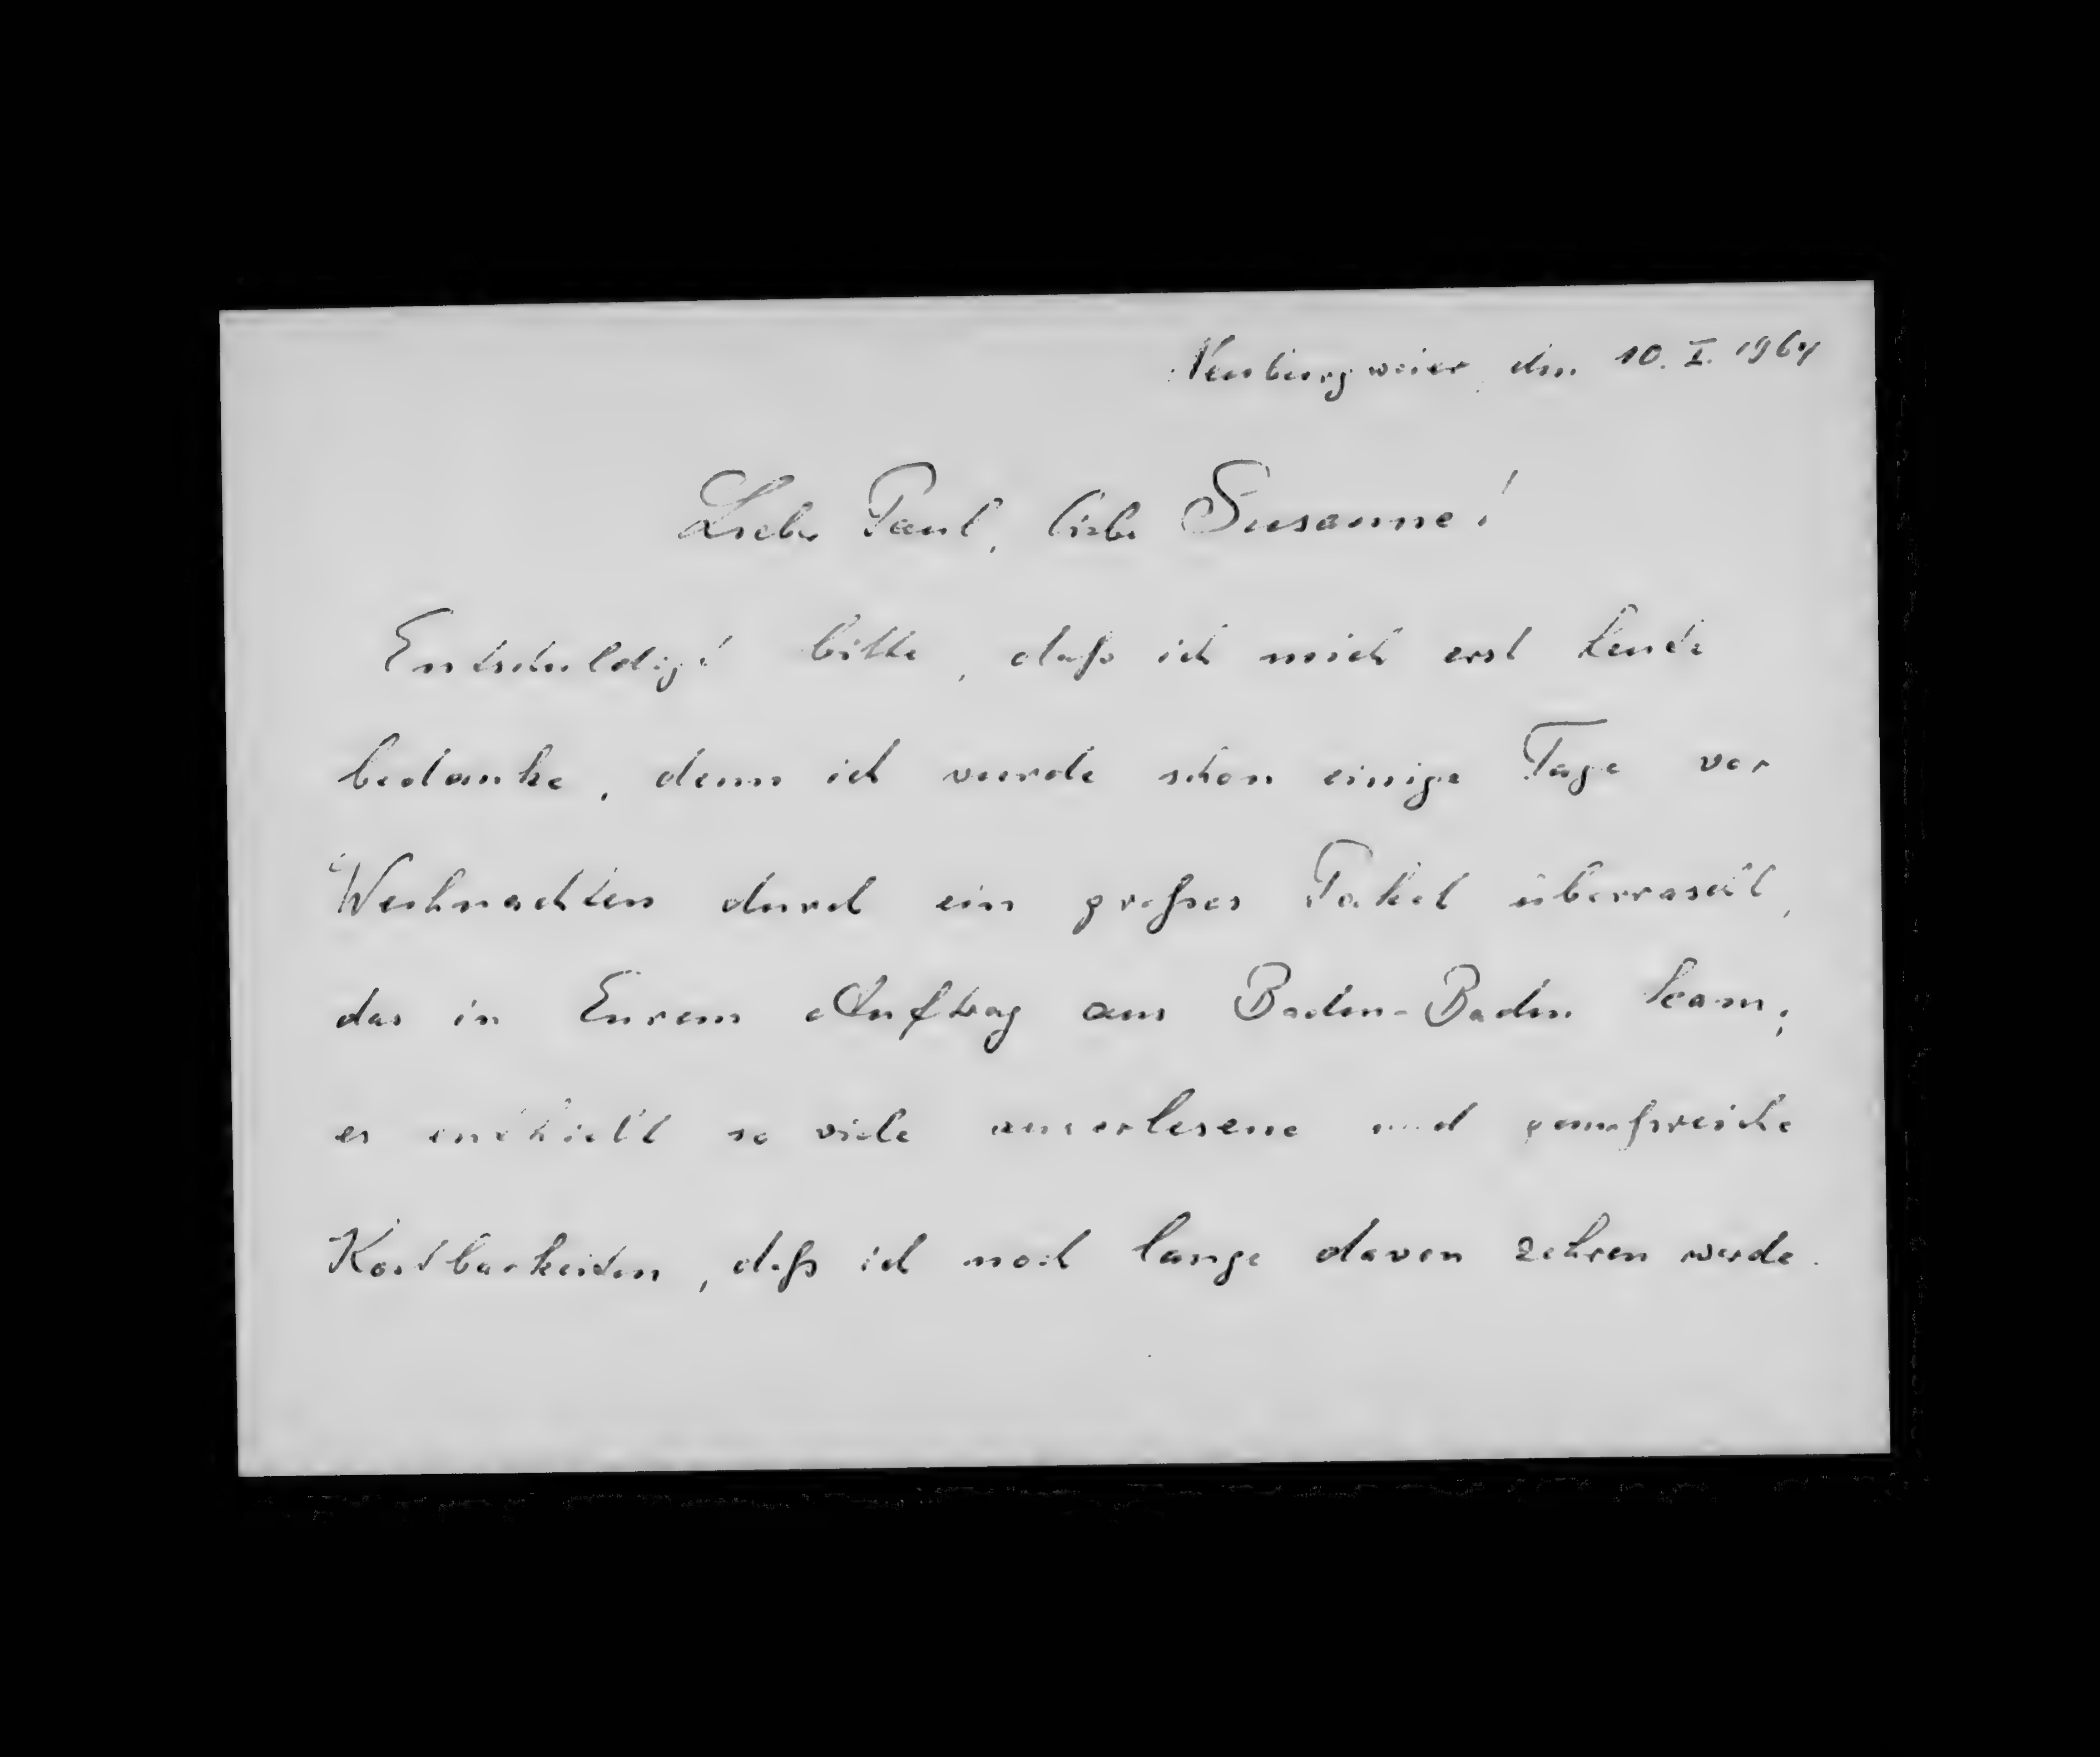 Neuburgweier, den 10. I. 1964
Lieber Paul, liebe Susanne!
Entschuldigt bitte, daß ich mich erst heute
bedanke, denn ich wurde schon einige Tage vor
Weihnachten durch ein großes Paket überrascht,
das in Eurem Auftrag aus Baden-Baden kam;
es enthielt so viele auserlesene und genußreiche
Kostbarkeiten, daß ich noch lange davon zehren werde.